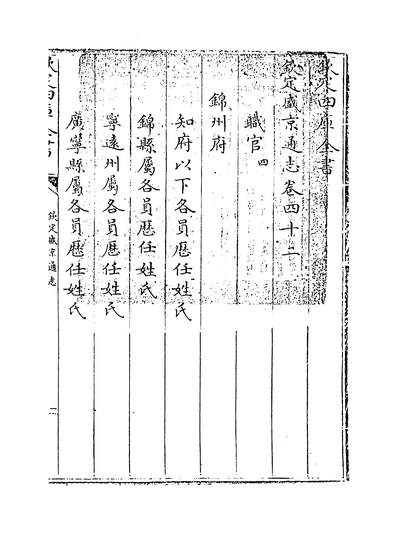 欽定四庫全書
欽定盛京通志卷四十二
職官四
錦州府
知府以下各員歷任姓氏
錦縣屬各員歷任姓氏
寧遠州屬各員歷任姓氏
廣寧縣屬各員歷任姓氏
欽定四庫全書
欽定盛京通志
一